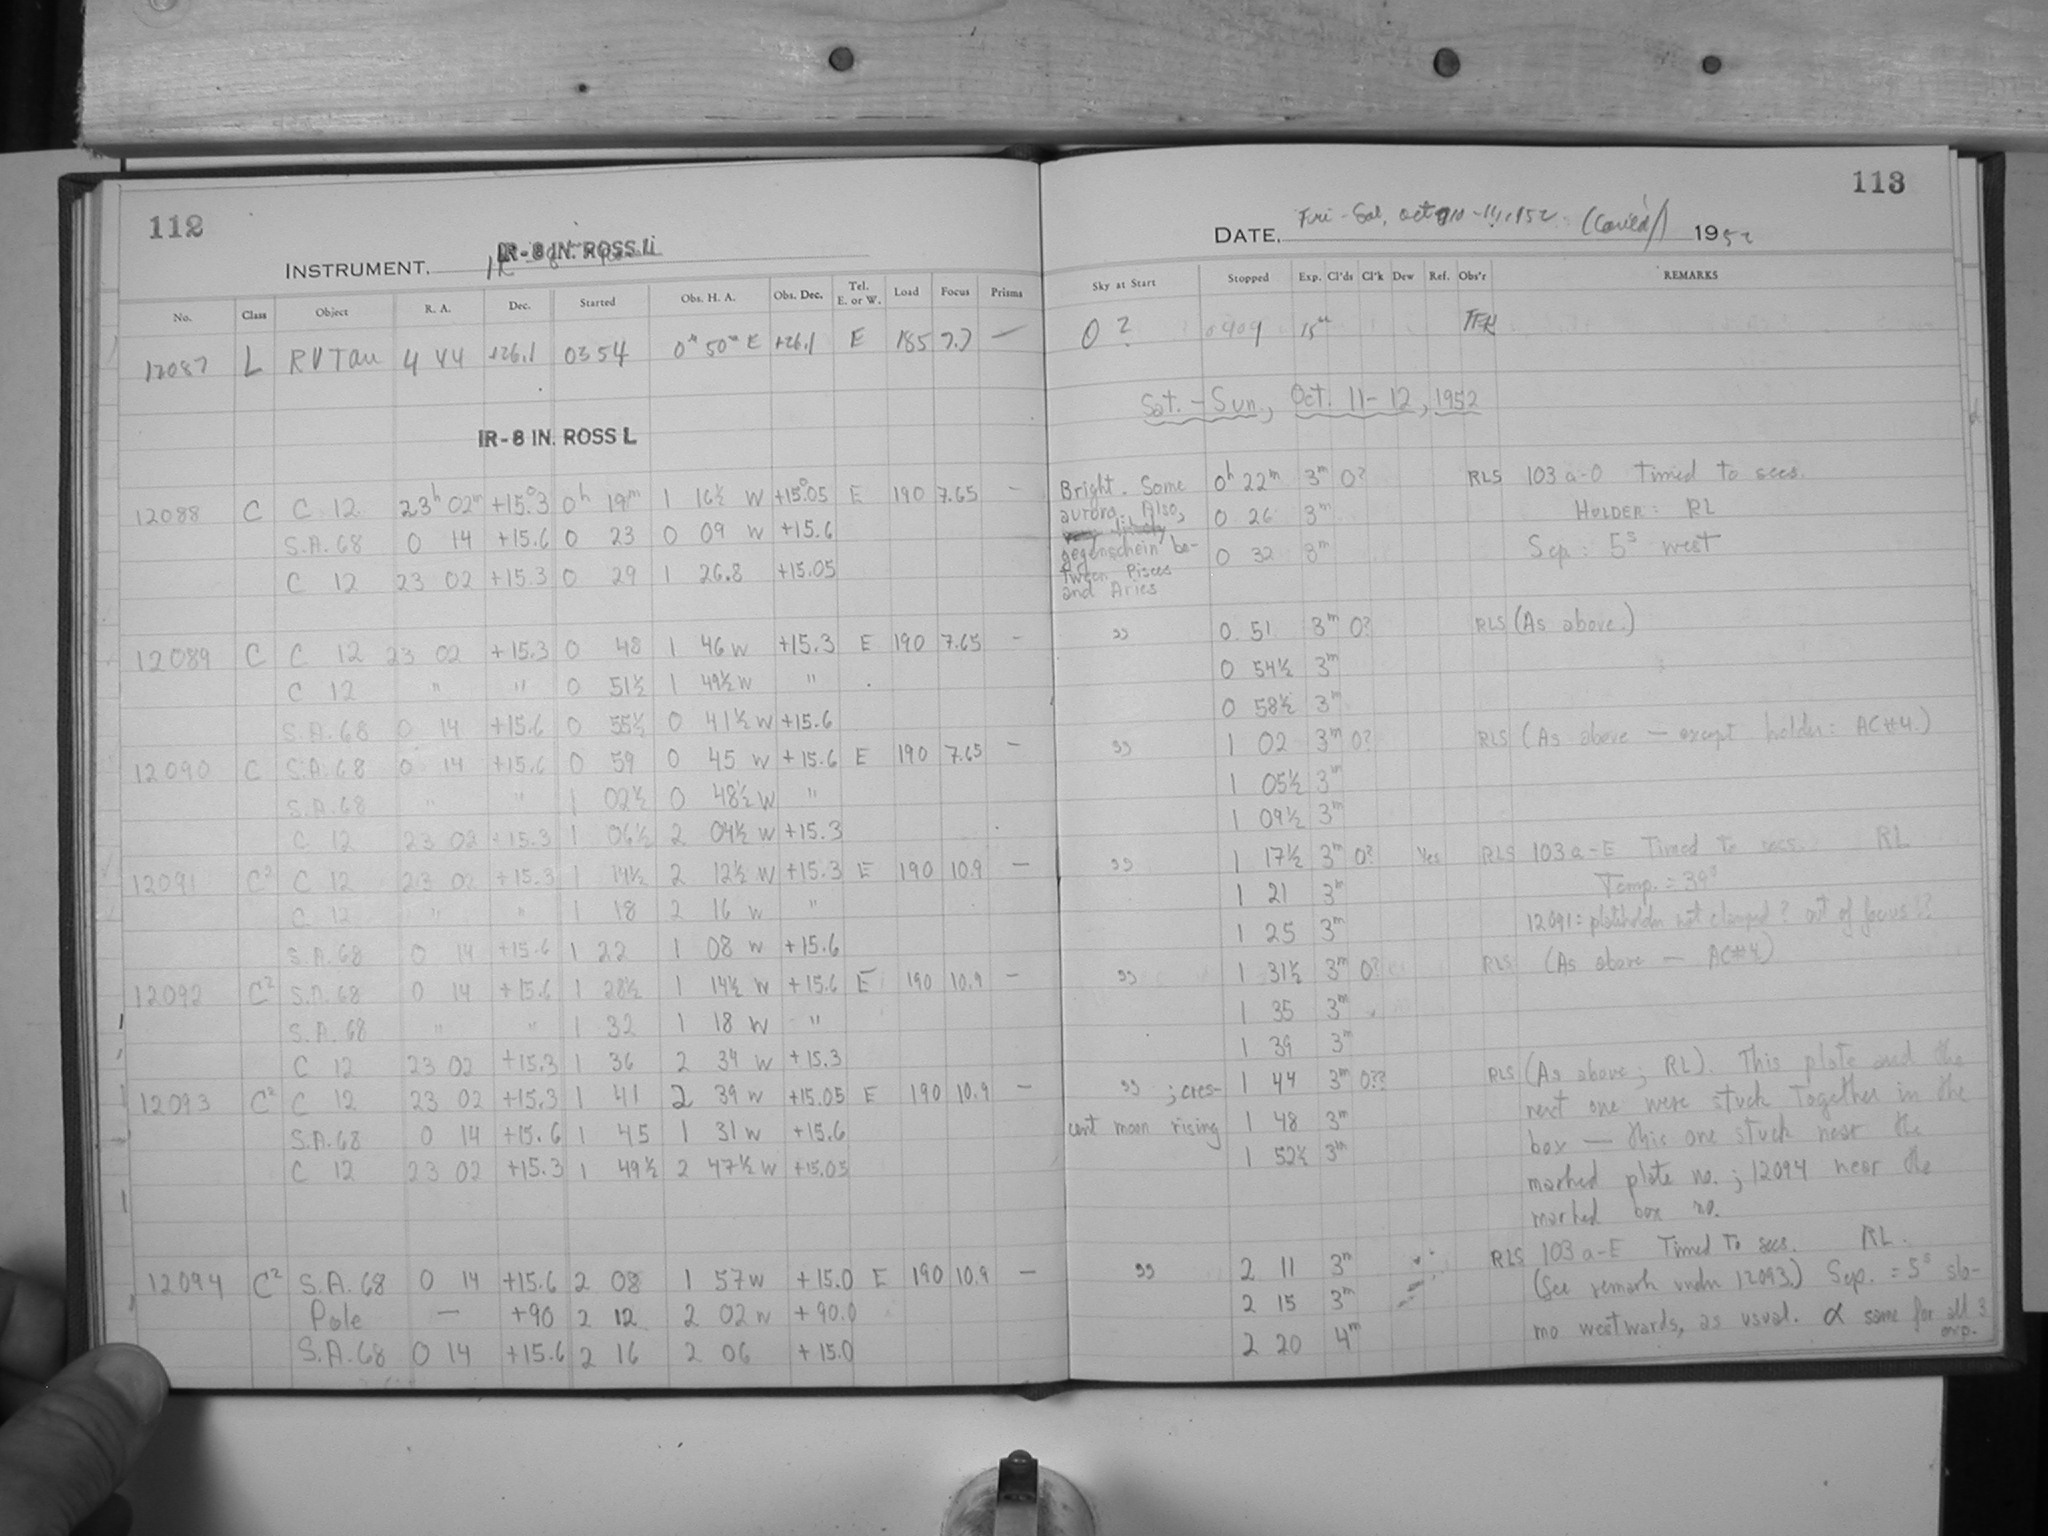 112
INSTRUMENT. IR-8 IN. ROSS L
No. Class Object R. A. Dec. Started Obs. H. A. Obs. Dec. Tel. E. or W. Load Focus Prisms
12087 L RV Tau 4 44 +26.1 0354 0ʰ 50ᵐ E +26.1 E 185 7.7 —
IR-8 IN. ROSS L
12088 C C 12 23ʰ 02ᵐ +15.°3 0ʰ 19ᵐ 1 16½ W +15.°05 E 190 7.65 —
S.A. 68 0 14 +15.6 0 23 0 09 W +15.6
C 12 23 02 +15.3 0 29 1 26.8 +15.05
12089 C C 12 23 02 +15.3 0 48 1 46 W +15.3 E 190 7.65 —
C 12 " " 0 51½ 1 49½ W "
S.A. 68 0 14 +15.6 0 55½ 0 41½ W +15.6
12090 C S.A. 68 0 14 +15.6 0 59 0 45 W +15.6 E 190 7.65 —
S.A. 68 " " 1 02½ 0 48½ W "
C 12 23 02 +15.3 1 06½ 2 04½ W +15.3
12091 C² C 12 23 02 +15.3 1 14½ 2 12½ W +15.3 E 190 10.9 —
C 12 " " 1 18 2 16 W "
S.A. 68 0 14 +15.6 1 22 1 08 W +15.6
12092 C² S.A. 68 0 14 +15.6 1 28½ 1 14½ W +15.6 E 190 10.9 —
S.A. 68 " " 1 32 1 18 W "
C 12 23 02 +15.3 1 36 2 34 W +15.3
12093 C² C 12 23 02 +15.3 1 41 2 39 W +15.05 E 190 10.9 —
S.A. 68 0 14 +15.6 1 45 1 31 W +15.6
C 12 23 02 +15.3 1 49½ 2 47½ W +15.05
12094 C² S.A. 68 0 14 +15.6 2 08 1 57 W +15.0 E 190 10.9 —
Pole — +90 2 12 2 02 W +90.0
S.A. 68 0 14 +15.6 2 16 2 06 +15.0
113
DATE, Fri - Sat, Oct 10-11, 1952 (Cont'd) 1952
Sky at Start Stopped Exp. Cl'ds Cl'k Dew Ref. Obs'r REMARKS
0? 0409 15ᵐ
Sat. - Sun., Oct. 11-12, 1952
Bright. Some 0ʰ 22ᵐ 3ᵐ 0? RLS 103 a-O Timed to secs.
aurora. Also, 0 26 3ᵐ HOLDER: RL
gegenschein be- 0 32 3ᵐ Sep: 5ˢ west
tween Pisces
and Aries
" 0 51 3ᵐ 0? RLS (As above.)
0 54½ 3ᵐ
0 58½ 3ᵐ
" 1 02 3ᵐ 0? RLS (As above — except holder: AC#4.)
1 05½ 3ᵐ
1 09½ 3ᵐ
" 1 17½ 3ᵐ 0? Yes RLS 103 a-E Timed to secs. RL
1 21 3ᵐ Temp. = 39°
1 25 3ᵐ 12091: plateholder not clamped? out of focus??
" 1 31½ 3ᵐ 0? RLS (As above — AC#4)
1 35 3ᵐ
1 39 3ᵐ
" ; cres- 1 44 3ᵐ 0?? RLS (As above; RL). This plate and the
cent moon rising 1 48 3ᵐ next one were stuck together in the
1 52½ 3ᵐ box — this one stuck near the
marked plate no.; 12094 near the
marked box no.
" 2 11 3ᵐ RLS 103 a-E Timed to secs. RL.
2 15 3ᵐ (See remark under 12093.) Sep. = 5ˢ slo-
2 20 4ᵐ mo westwards, as usual. α same for all 3
exp.